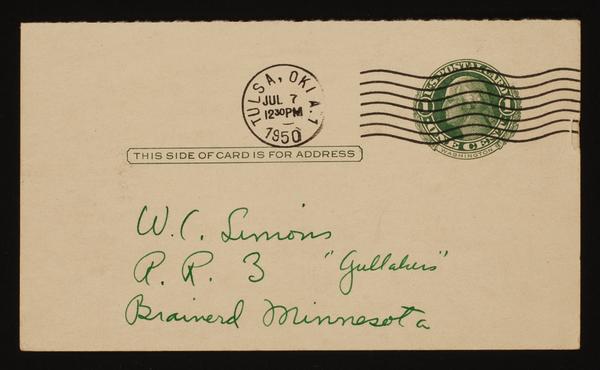 TULSA, OKLA. 1
JUL 7
12 30 PM
1950
U.S. POSTAL CARD
1 1
ONE CENT
WASHINGTON
THIS SIDE OF CARD IS FOR ADDRESS
W. C. Simons
R. R. 3 "Gullakes"
Brainerd Minnesota